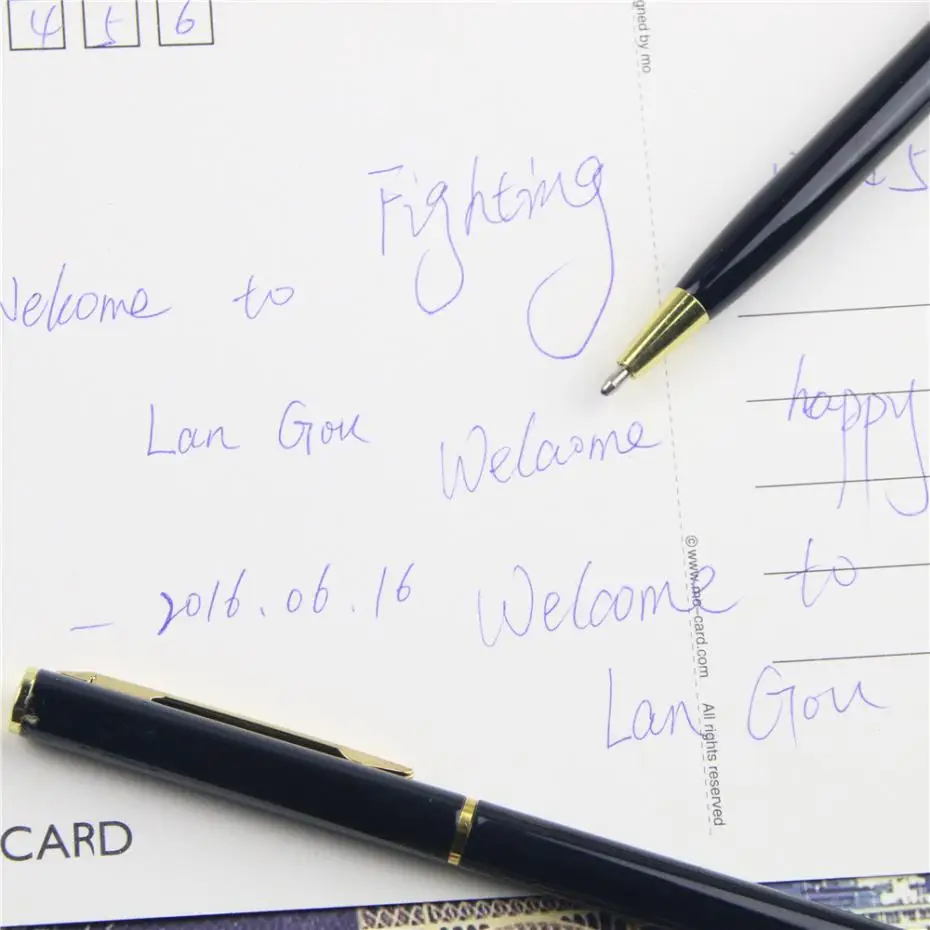 4 5 6
gned by mo
5
Fighting
Welcome to
happy
Lan Gou Welcome
to
- 2016.06.16 Welcome
©www.mo-card.com All rights reserved
Lan Gou
CARD